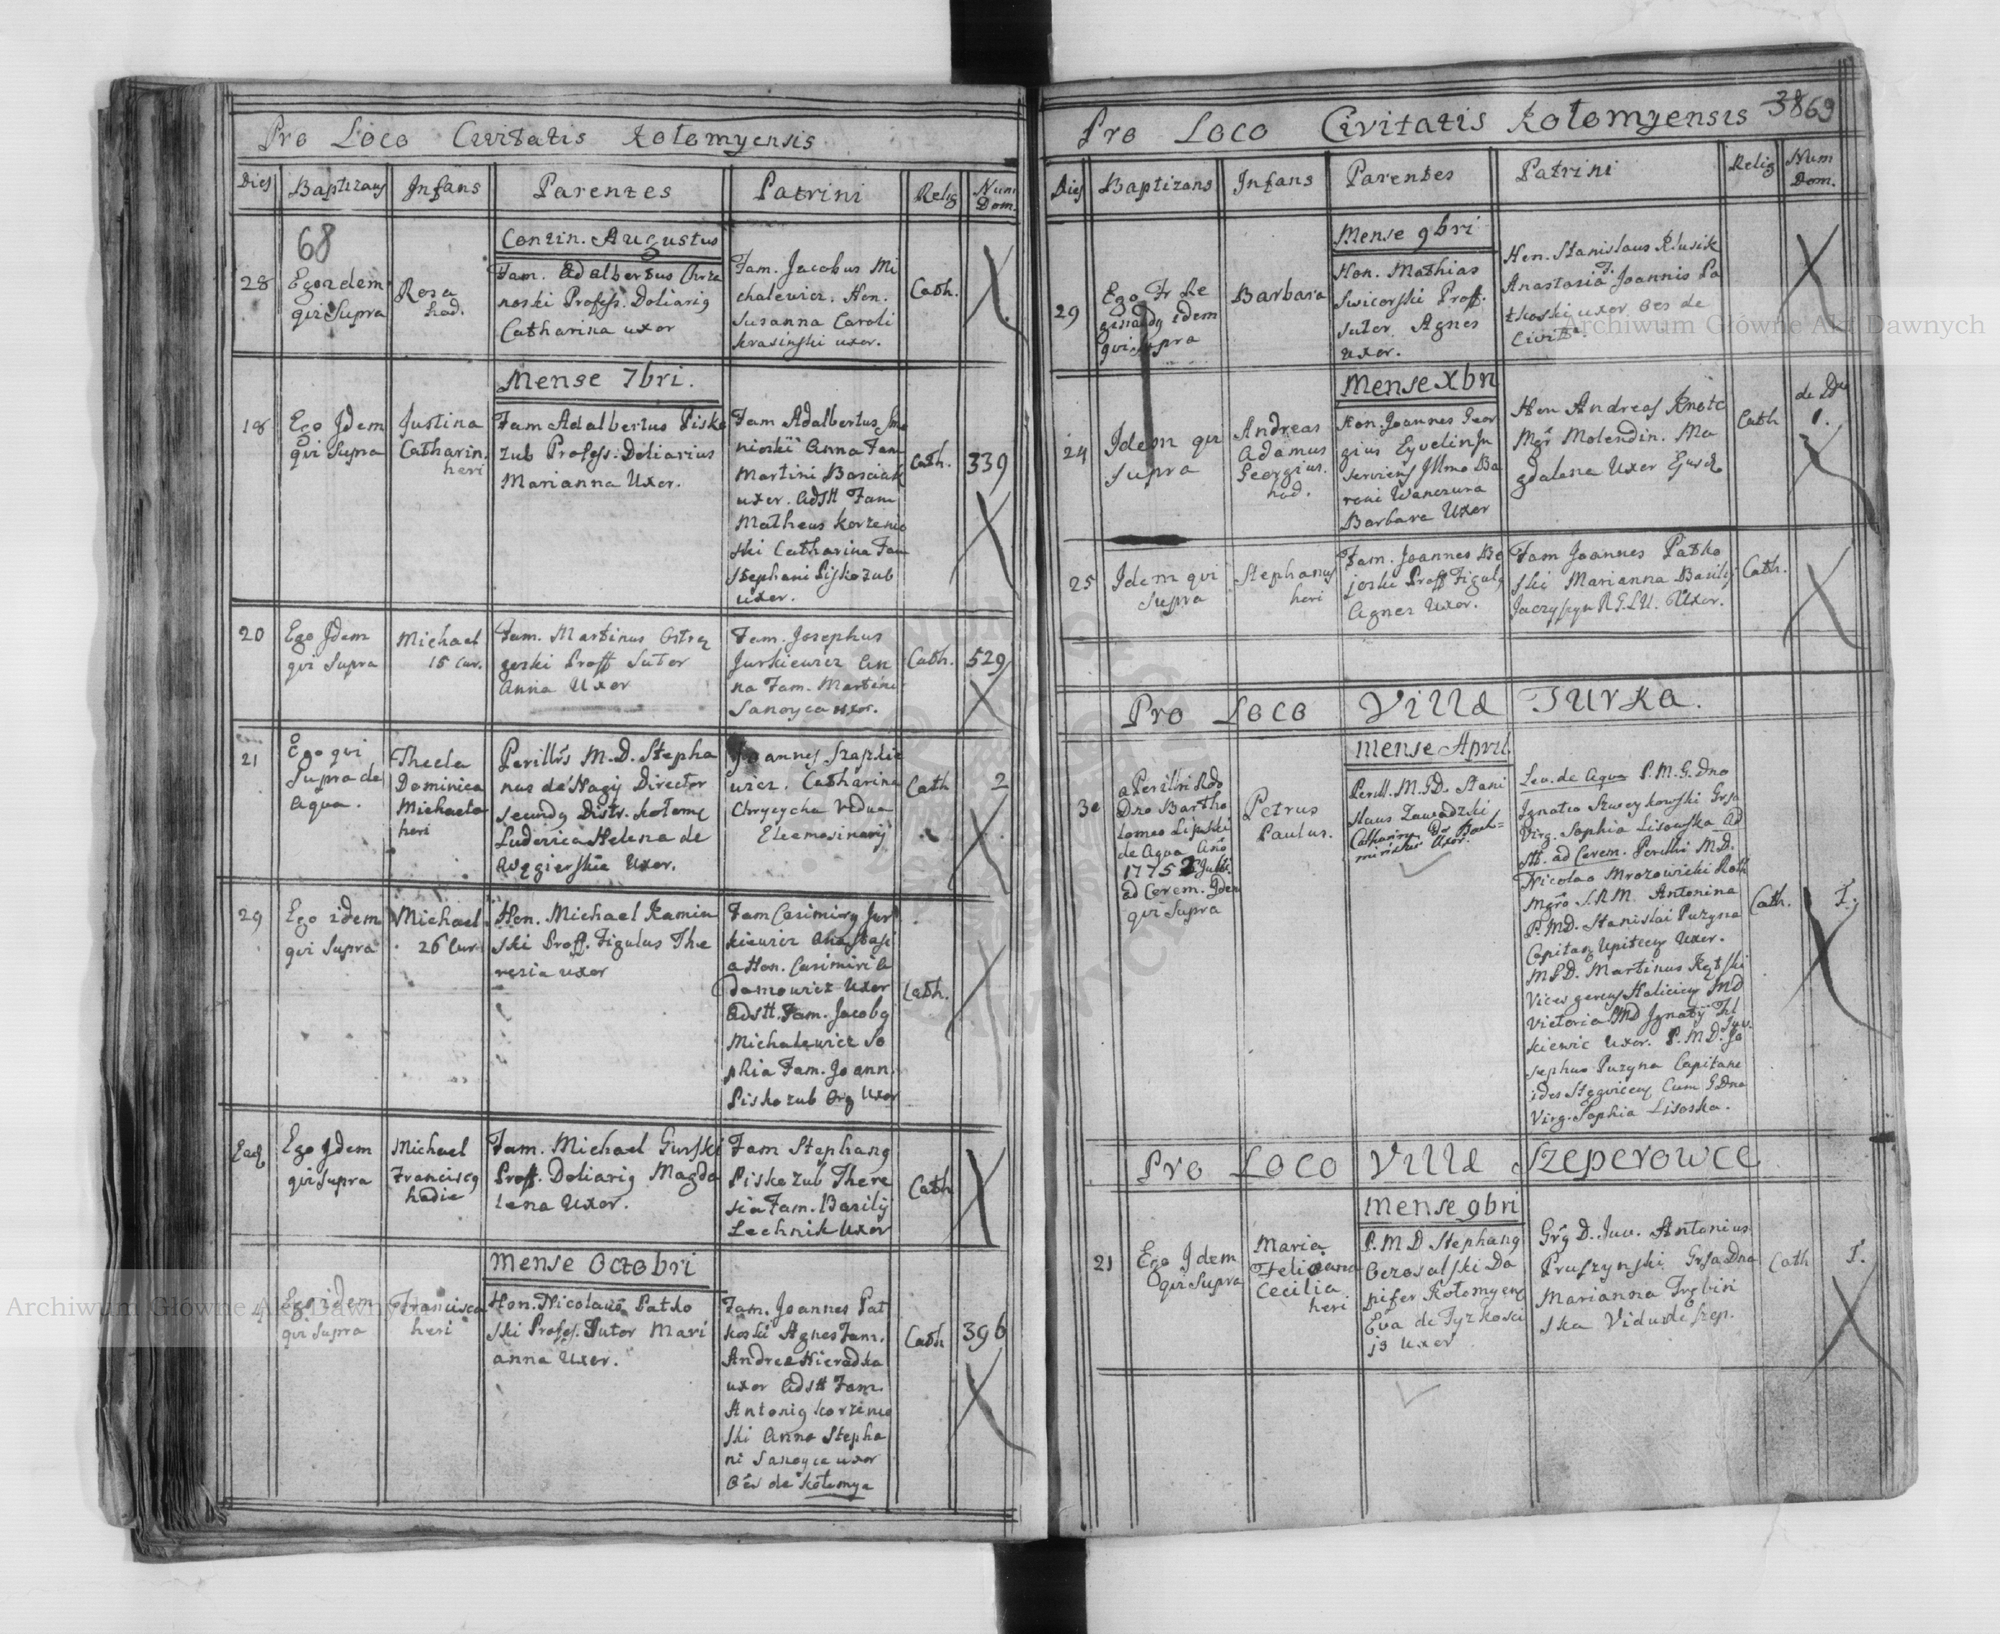 Pro Loco Civitatis Kołomyensis
Dies Baptizans Infans Parentes Patrini Relig Num Dom.
68
Contin. Augustus
28
Ego idem
qui Supra
Rosa
hod.
Fam. Adalbertus Chrza
noski Profess. Doliarig
Catharina uxor
Fam. Jacobus Mi
chalewicz. Hon.
Susanna Caroli
Krasinski uxor.
Cath.
Mense 7bri.
18
Ego Jdem
qui Supra
Justina
Catharin.
heri
Fam Adalbertus Pisko
zub Profess. Doliarius
Marianna Uxor.
Fam Adalbertus
Anna Fam
Martini Bosciak
uxor. Adstt Fam
Matheus Korzenio
ski Catharina Fam
Stephani Piskozub
uxor.
Cath.
339
20
Ego Jdem
qui Supra
Michael
15 cur.
Fam. Martinus Ostro
goski Proff Sutor
Anna Uxor
Fam. Josephus
Jurkiewicz An
na Fam. Martini
Sanoyca uxor.
Cath.
529
21
Ego qui
Supra de
Aqua.
Thecla
Dominica
Michaela
heri
Perills M. D. Stepha
nus de Nagy Director
secundg Distr. Kołome
Ludovica Helena de
Węgierskie Uxor.
Joannes Szapkie
wicz. Catharina
Chrycycha Vidua
Eleemosinarij
Cath
2
29
Ego idem
qui Supra
Michael
26 Cur.
Hon. Michael Kamin
ski Proff. Figulus The
resia uxor
Fam Casimirg Jur
kiewicz Anastasi
a Hon. Casimiri A
damowicz Uxor
Adstt. Fam. Jacobg
Michalewicz So
phia Fam. Joann.
Piskozub Org Uxor
Cath.
Ead
Ego Jdem
qui Supra
Michael
Franciscg
hodie
Fam. Michael Gurski
Proff. Doliarig Magda
lena Uxor.
Fam Stephang
Piskozub There
sia Fam. Basilij
Lechnik Uxor
Cath
Mense Octobri
4
Ego idem
qui Supra
Francisca
heri
Hon. Nicolaus Patko
ski Profess. Sutor Mari
anna Uxor.
Fam. Joannes Pat
koski Agnes Fam.
Andreæ Hieradka
uxor Adstt Fam.
Antonig Korzenio
ski Anna Stepha
ni Sanoyca uxor
Oes de Kołomya
Cath
396
Pro Loco Civitatis Kołomyensis 3869
Dies Baptizans Infans Parentes Patrini Relig Num Dom.
Mense 9bri
29
Ego Fr Re
ginaldg idem
qui Supra
Barbara
Hon. Mathias
Swicorski Proff.
Sutor Agnes
Uxor.
Hon. Stanislaus Klusik
Anastasia Joannis Pa
tkoski uxor Oes de
Civitte
Mense Xbri
24
Idem qui
Supra
Andreas
Adamus
Georgius.
hod.
Hon. Joannes Geor
gius Eyvelin Ju
serviens Jllmo Ba
roni Wanczura
Barbara Uxor
Hon Andreas Knote
Mgr Molendin. Ma
gdalena Uxor Ejusd
Cath
1.
25
Idem qui
Supra
Stephanus
heri
Fam. Joannes Bo
joski Proff Figulg
Agnes Uxor.
Fam Joannes Patko
ski Marianna Basilij
Jaczyszyn R.G.L.U. Uxor.
Cath.
Pro Loco Villa Turka.
Mense April
30
a Perilli Rdo
Dno Bartho
lomeo Lipski
de Aqua Ano
1775
ad Cerem. Jdem
qui Supra
Petrus
Paulus.
Perill. M. GD. Stani
slaus Zawadzki
Catharina
Uxor.
Lev. de Aqua P. M. G. Dno
Ignatio Szweykowski Grsa
Virg. Sophia Lisowska Ad
stt. ad Cerem. Perilli M.D.
Nicolao Mrozowicki Roth
Mgro S.R.M. Antonina
P. MD. Stanislai Puzyna
Capitan Upitecg Uxor.
M P.D. Martinus Kętski
Vices gerens Haliciens MD
Victoria PMD Jgnatij Fil
kiewic Uxor. P. M. D. Juv. Jo
sephus Puzyna Capitane
ides Cum GDna
Virg. Sophia Lisoska.
Cath.
1.
Pro Loco Villa Szeperowce
Mense 9bri
21
Ego Jdem
qui Supra
Maria
Feliciana
Cecilia
heri
P. M D Stephang
Berosalski Da
pifer Kołomyenc
Eva de Tyzkosci
is Uxor
Grg D. Juv. Antonius
Pruszynski Grsa Dna
Marianna Trębiń
ska Vidua de Szep.
Cath
1.
Archiwum Główne Akt Dawnych
Archiwum Główne Akt Dawnych